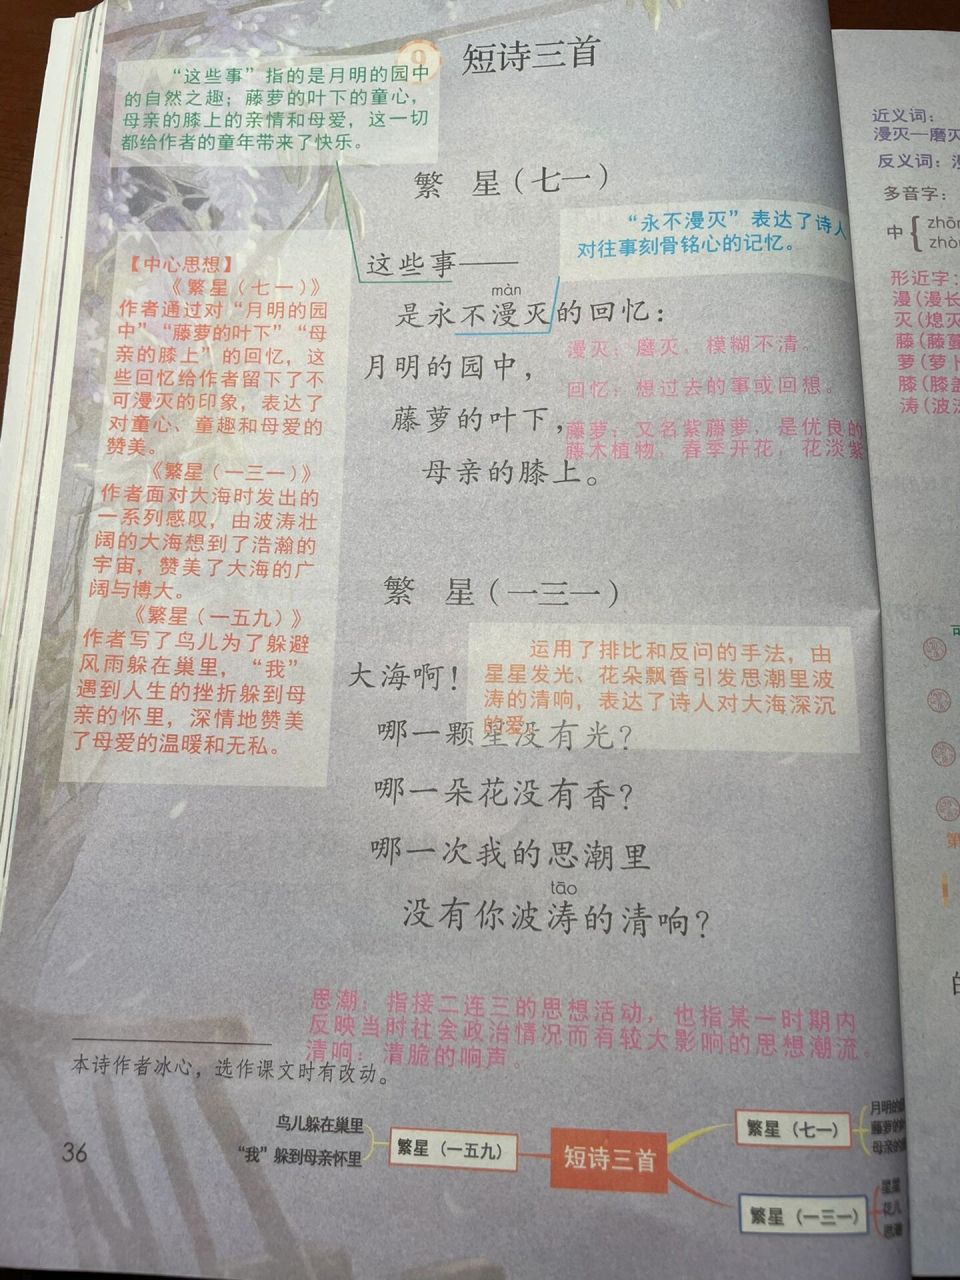 9 短诗三首
“这些事”指的是月明的园中
的自然之趣；藤萝的叶下的童心，
母亲的膝上的亲情和母爱，这一切
都给作者的童年带来了快乐。
繁 星（七一）
“永不漫灭”表达了诗人
对往事刻骨铭心的记忆。
这些事——
màn
是永不漫灭的回忆：
月明的园中，
藤萝的叶下，
母亲的膝上。
漫灭：磨灭，模糊不清。
回忆：想过去的事或回想。
藤萝：又名紫藤萝，是优良的
藤木植物，春季开花，花淡紫
【中心思想】
《繁星（七一）》
作者通过对“月明的园
中”“藤萝的叶下”“母
亲的膝上”的回忆，这
些回忆给作者留下了不
可漫灭的印象，表达了
对童心、童趣和母爱的
赞美。
《繁星（一三一）》
作者面对大海时发出的
一系列感叹，由波涛壮
阔的大海想到了浩瀚的
宇宙，赞美了大海的广
阔与博大。
《繁星（一五九）》
作者写了鸟儿为了躲避
风雨躲在巢里，“我”
遇到人生的挫折躲到母
亲的怀里，深情地赞美
了母爱的温暖和无私。
繁 星（一三一）
运用了排比和反问的手法，由
星星发光、花朵飘香引发思潮里波
涛的清响，表达了诗人对大海深沉
的爱。
大海啊！
哪一颗星没有光？
哪一朵花没有香？
哪一次我的思潮里
tāo
没有你波涛的清响？
思潮：指接二连三的思想活动，也指某一时期内
反映当时社会政治情况而有较大影响的思想潮流。
清响：清脆的响声。
本诗作者冰心，选作课文时有改动。
36
鸟儿躲在巢里
“我”躲到母亲怀里
繁星（一五九）
短诗三首
繁星（七一）
月明的
藤萝的
母亲的
繁星（一三一）
星星
花儿
思潮
近义词：
漫灭—磨灭
反义词：
多音字：
中
zhō
zhò
形近字：
漫（漫长
灭（熄灭
藤（藤蔓
萝（萝卜
膝（膝盖
涛（波涛